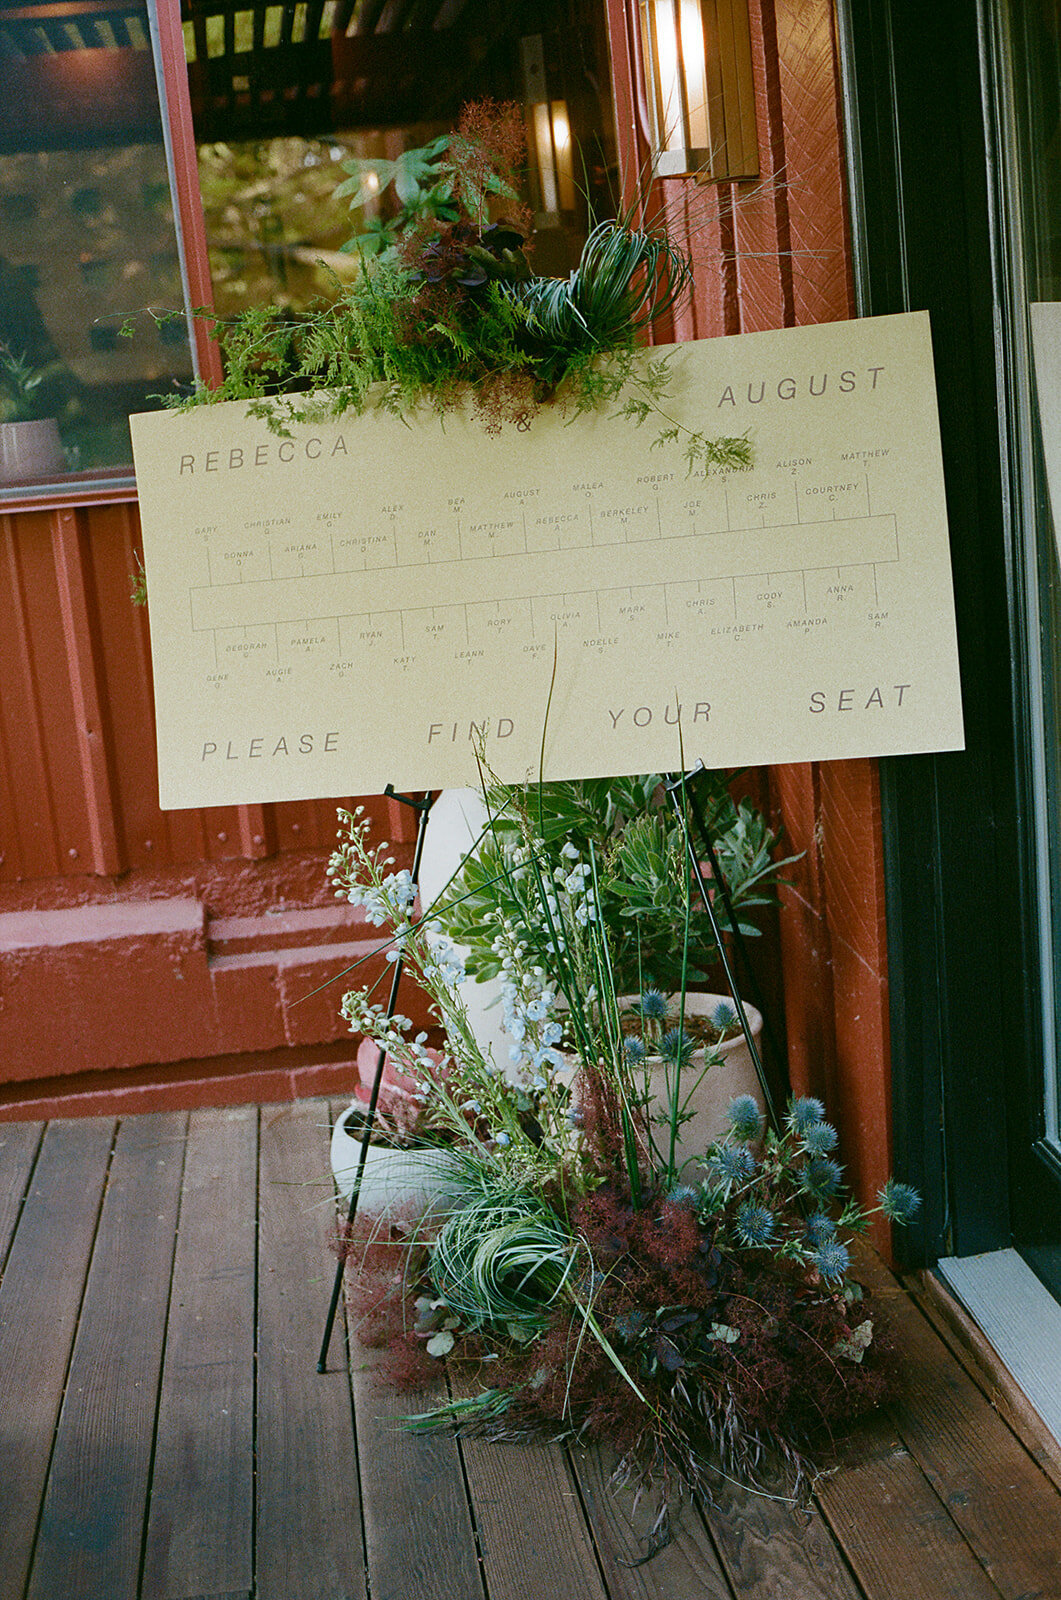 REBECCA & AUGUST
GARY S. CHRISTIAN G. EMILY G. ALEX D. BEA M. AUGUST A. MALEA O. ROBERT G. ALEXANDRIA S. ALISON Z. MATTHEW T.
DONNA G. ARIANA G. CHRISTINA D. DAN M. MATTHEW M. REBECCA A. BERKELEY M. JOE M. CHRIS Z. COURTNEY C.
DEBORAH PAMELA A. RYAN J. SAM T. RORY T. OLIVIA A. MARK S. CHRIS A. CODY S. ANNA R.
GENE G. AUGIE A. ZACH G. KATY T. LEANN T. DAVE F. NOELLE S. MIKE T. ELIZABETH C. AMANDA P. SAM R.
PLEASE FIND YOUR SEAT